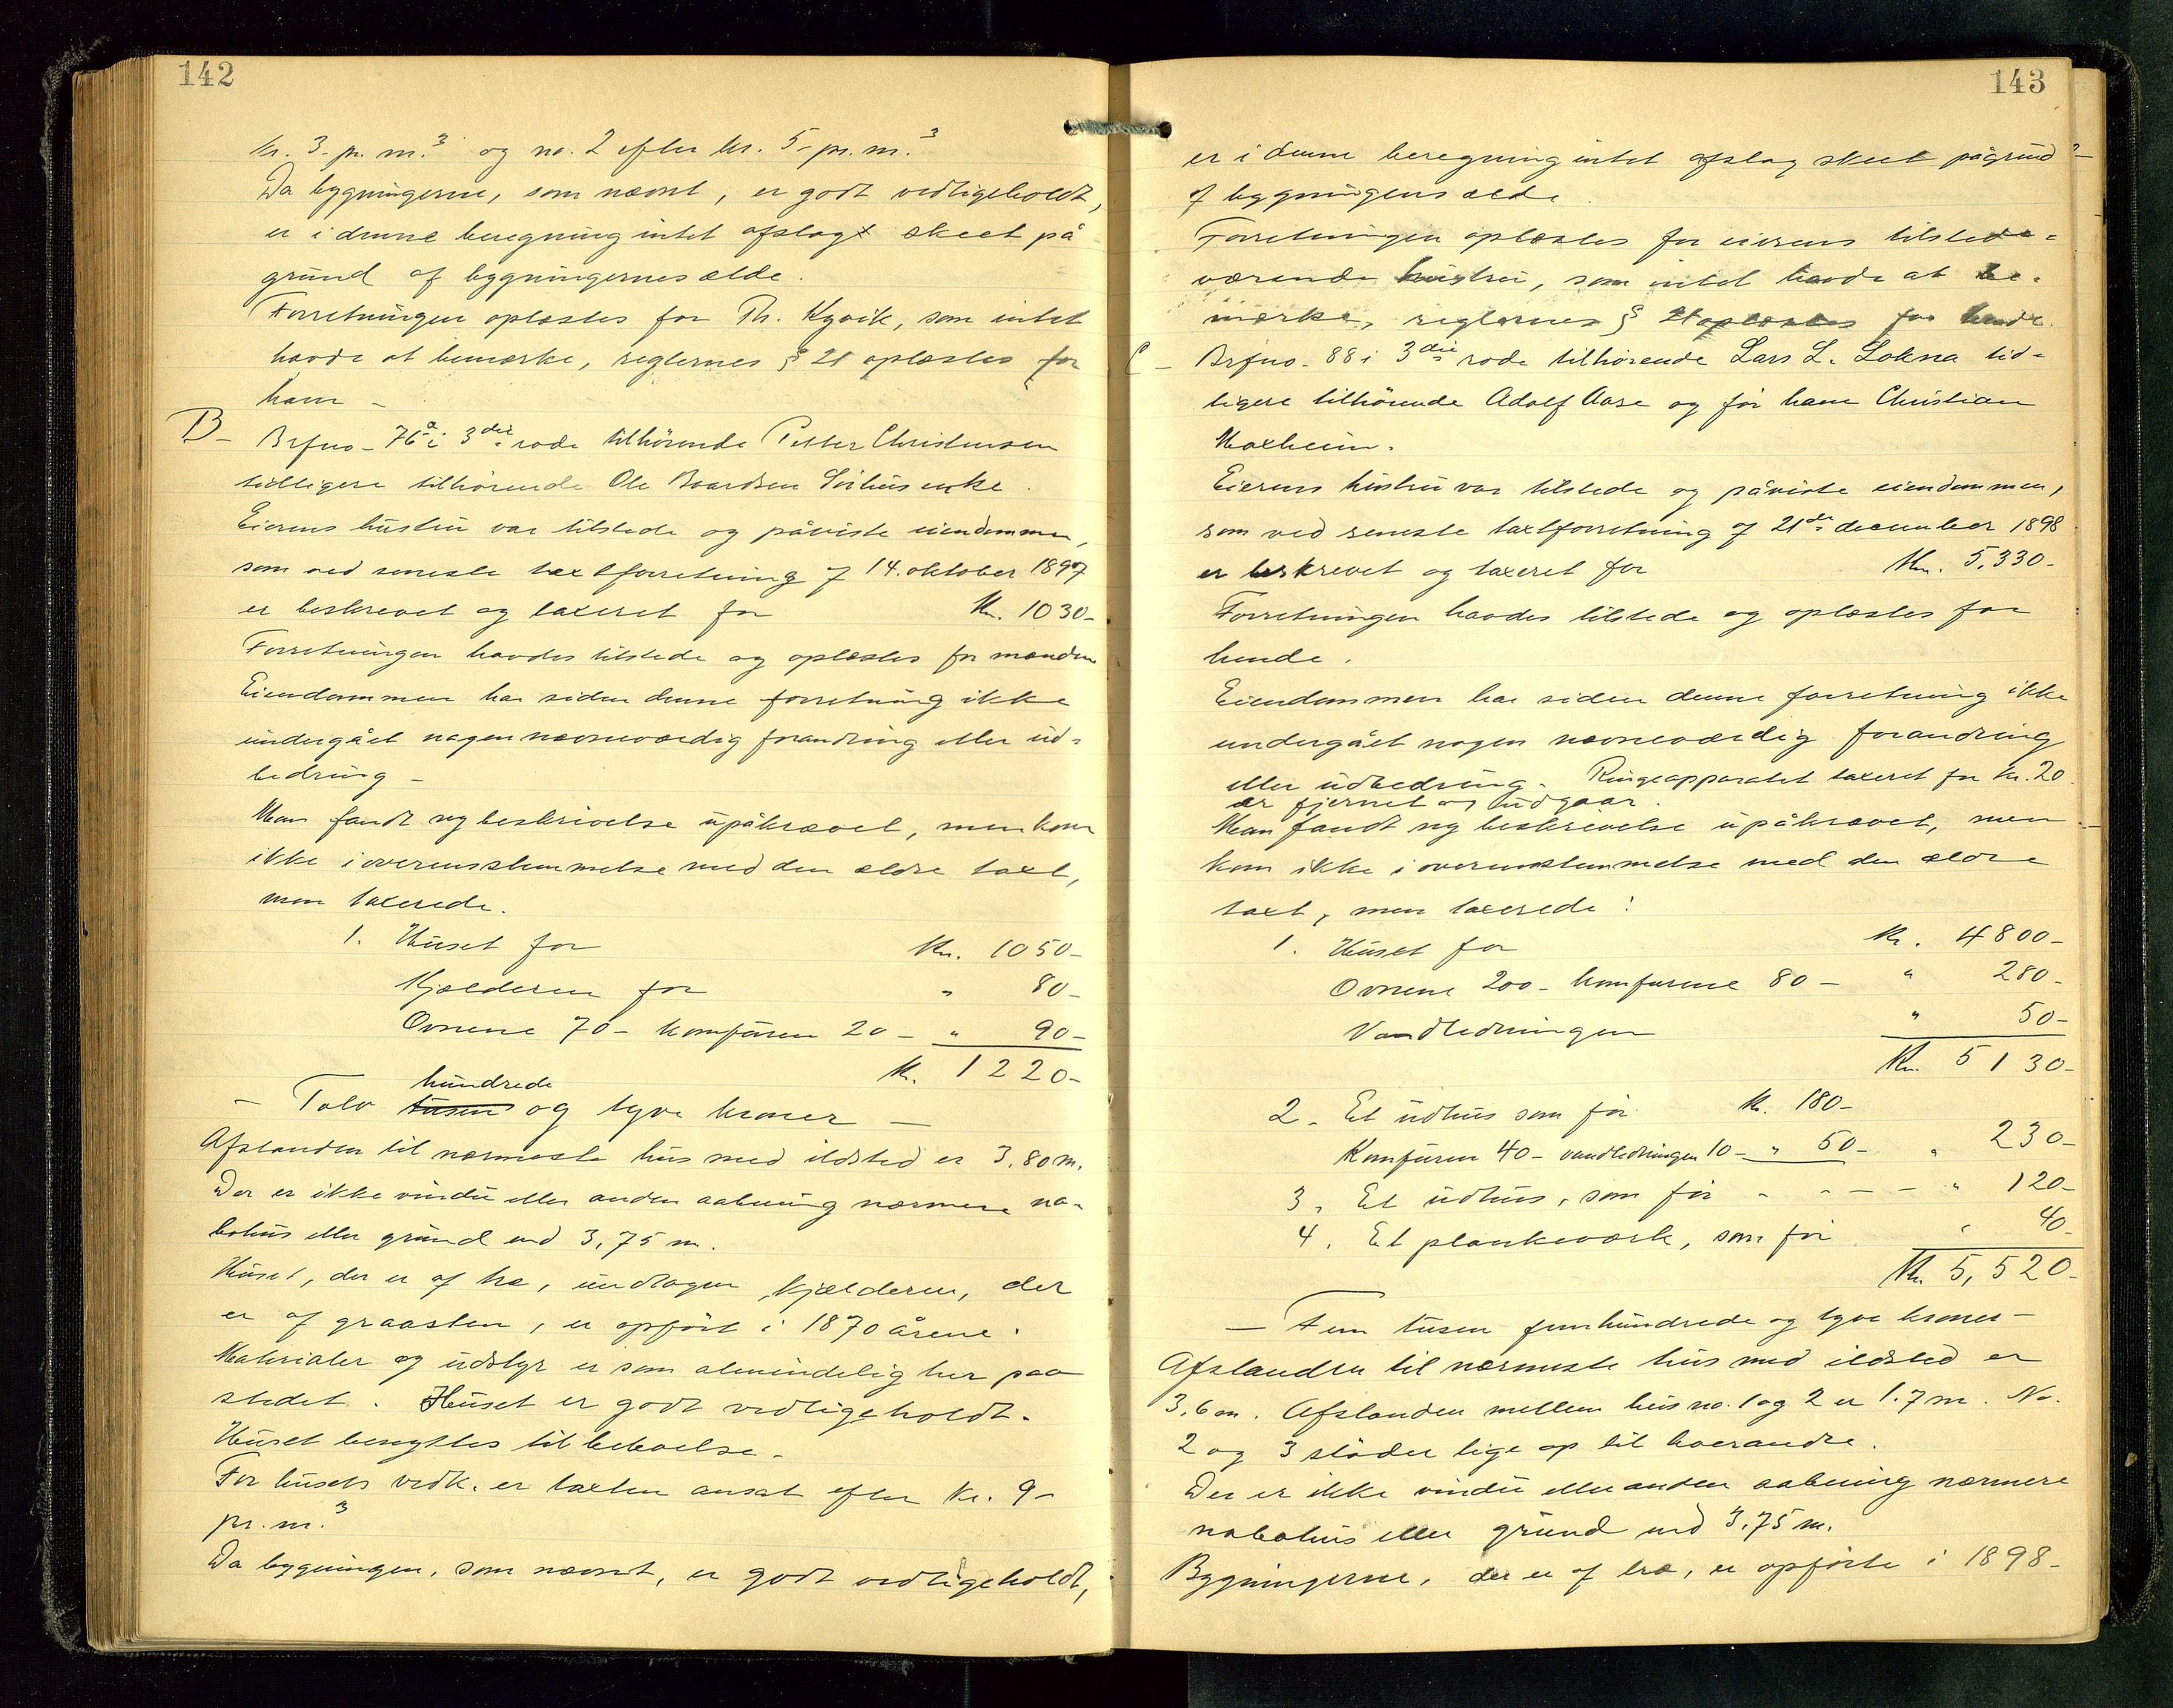 142
kr. 3- pr. m.³ og no. 2 efter kr. 5- pr. m.³
Da bygningerne, som nævnt, er godt vedligeholdt,
er i denne beregning intet afslagt skeet på
grund af bygningernes ælde.
Forretningen oplæstes for Th. Kyvik, som intet
havde at bemærke, reglernes § 21 oplæstes for
ham -
B- Brfno- 76ᵃ i 3die rode tilhørende Petter Christensen
tidligere tilhørende Ole Baardsen Sörhus enke.
Eierens hustru var tilstede og påviste eiendommen,
som ved seneste taxtforretning af 14. oktober 1897
er beskrevet og taxeret for Kr. 1030-
Forretningen havdes tilstede og oplæstes for manden
Eiendommen har siden denne forretning ikke
undergået nogen nævneværdig forandring eller ud=
bedring -
Man fandt ny beskrivelse upåkrævet, men kom
ikke i overensstemmelse med den ældre taxt,
men taxerede.
1. Huset for Kr. 1050-
Kjælderen for " 80-
Ovnene 70- komfuren 20- " 90-
Kr. 1220-
hundrede
- Tolv tusen og tyve kroner -
Afstanden til nærmeste hus med ildsted er 3,80 m.
Der er ikke vindu eller anden aabning nærmere na-
bohus eller grund end 3,75 m.
Huset, der er af træ, undtagen kjælderen, der
er af graasten, er opført i 1870 årene.
Materialer og udstyr er som almindelig her paa
stedet. Huset er godt vedligeholdt.
Huset benyttes til beboelse.
For husets vedk. er taxten ansat efter kr. 9-
pr. m.³
Da bygningen, som nævnt, er godt vedligeholdt,
143
er i denne beregning intet afslag skeet pågrund
af bygningens ælde.
Forretningen oplæstes for eierens tilstede=
værende hustru, som intet havde at be=
mærke, reglernes § 21 oplæstes for hende.
C- Brfno. 88 i 3die rode tilhørende Lars L. Lokna tid=
ligere tilhørende Adolf Aase og før ham Christian
Hoxheim.
Eierens hustru var tilstede og påviste eiendommen,
som ved seneste taxtforretning af 21de december 1898
er beskrevet og taxeret for Kr. 5,330-
Forretningen havdes tilstede og oplæstes for
hende.
Eiendommen har siden denne forretning ikke
undergået nogen nævneværdig forandring
eller udbedring. Ringeapparatet taxeret for kr. 20
er fjernet og udgaar.
Man fandt ny beskrivelse upåkrævet, men
kom ikke i overensstemmelse med den ældre
taxt, men taxerede:
1. Huset for Kr. 4800-
Ovnene 200- komfurene 80- " 280-
Vandledningen " 50-
Kr. 5130-
2. Et udhus som før kr. 180-
Komfuren 40- vandledningen 10- " 50- " 230-
3. Et udhus, som før - - - - " 120-
4. Et plankeværk, som før " 40-
Kr. 5,520-
- Fem tusen femhundrede og tyve kroner-
Afstanden til nærmeste hus med ildsted er
3,6 m. Afstanden mellem hus no. 1 og 2 er 1.7 m. No.
2 og 3 støder lige op til hverandre.
Der er ikke vindu eller anden aabning nærmere
nabohus eller grund end 3,75 m.
Bygningerne, der er af træ, er opførte i 1898-